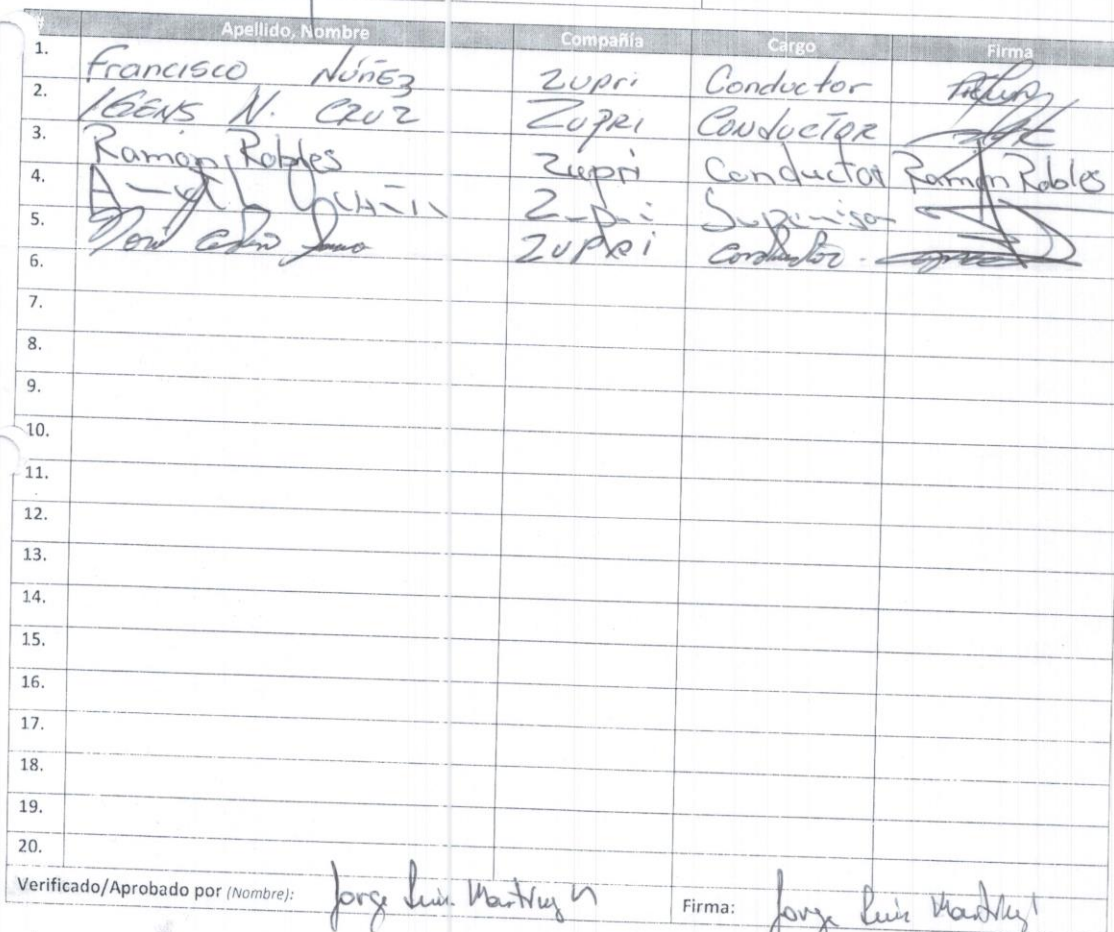 Apellido, Nombre Compañía Cargo Firma
1. Francisco Núñez Zupri Conductor
2. IGENS N. CRUZ Zupri CONDUCTOR
3. Ramón Robles Zupri Conductor Ramón Robles
4. Zupri Supervisor
5. José Zupri Conductor
6.
7.
8.
9.
10.
11.
12.
13.
14.
15.
16.
17.
18.
19.
20.
Verificado/Aprobado por (Nombre): Jorge Luis Martínez Firma: Jorge Luis Martínez